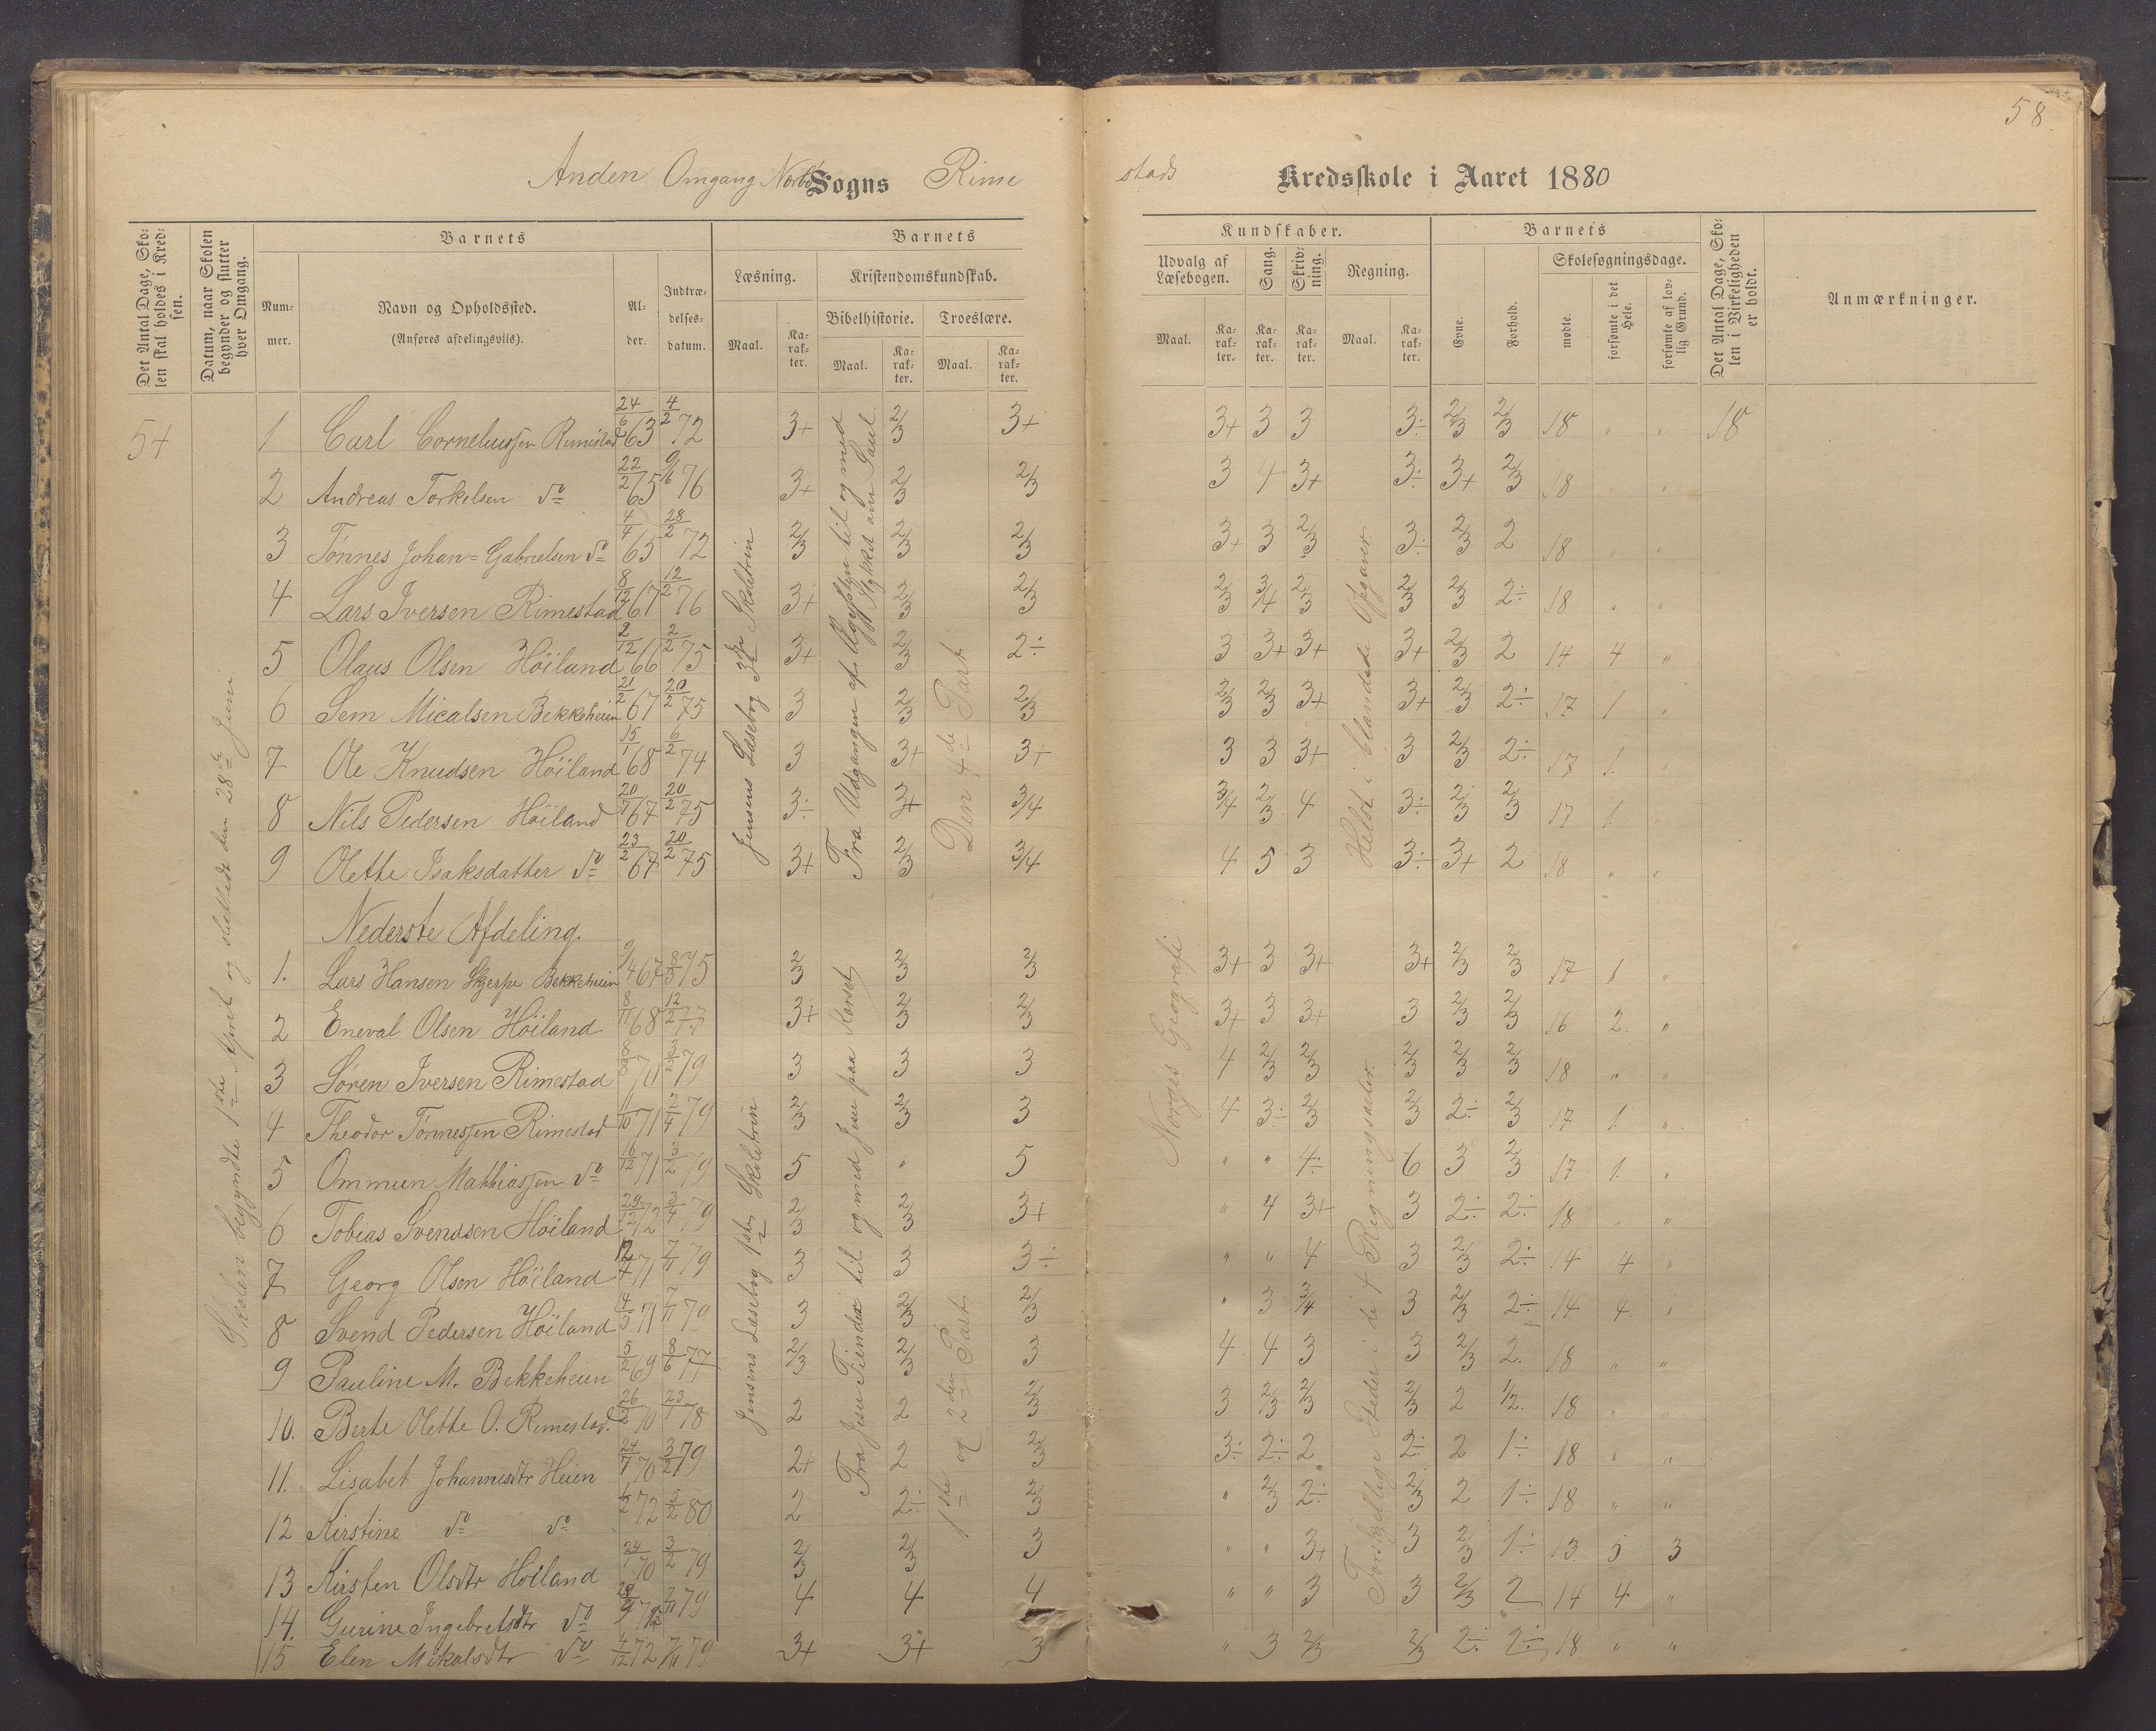 58.
Anden Omgang Nærbø Sogns Rime
stads Kredsskole i Aaret 1880
Det Antal Dage, Skolen skal holdes i Kredsen.
Datum, naar Skolen begynder og slutter hver Omgang.
Barnets
Num-
mer.
Navn og Opholdssted.
(Anføres afdelingsviis).
Al-
der.
Indtræ-
delses-
datum.
Barnets
Læsning.
Maal.
Ka-
rak-
ter.
Kristendomskundskab.
Bibelhistorie.
Maal.
Ka-
rak-
ter.
Troeslære.
Maal.
Ka-
rak-
ter.
Kundskaber.
Udvalg af
Læsebogen.
Maal.
Ka-
rak-
ter.
Sang.
Ka-
rak-
ter.
Skriv-
ning.
Ka-
rak-
ter.
Regning.
Maal.
Ka-
rak-
ter.
Barnets
Evne.
Forhold.
Skolesøgningsdage.
mødte.
forsømte i det Hele.
forsømte af lovlig Grund.
Det Antal Dage, Skolen i Virkeligheden er holdt.
Anmærkninger.
54
Skolen begyndte 1ste April og sluttede den 28de Juni
1 Carl Corneliussen Rimestad 24/6 63 4/2 72 3+ 2/3 3+ 3+ 3 3 3÷ 2/3 2/3 18 " " 18
2 Andreas Torkelsen do 22/2 65 9/6 76 3+ 2/3 2/3 3 4 3+ 3÷ 3+ 2/3 18 " "
3 Tønnes Johan=Gabrielsen do 4/4 65 28/2 72 2/3 2/3 2/3 3+ 3 2/3 3÷ 2/3 2 18 " "
4 Lars Iversen Rimestad 8/12 67 12/2 76 3+ 2/3 2/3 2/3 3/4 2/3 2/3 2/3 2÷ 18 " "
5 Olaus Olsen Höiland 2/12 66 2/2 75 3+ 2/3 2÷ 3 3+ 3+ 3+ 2/3 2 14 4 "
6 Sem Micalsen Bekkeheien 21/2 67 20/2 75 3 2/3 2/3 2/3 2/3 3+ 3+ 2/3 2÷ 17 1 "
7 Ole Knudsen Höiland 15/1 68 6/2 74 3 3+ 3+ 3 3 3+ 3 2/3 2÷ 17 1. "
8 Nils Pedersen Höiland 20/7 67 20/2 75 3÷ 3+ 3/4 3/4 2/3 4 3÷ 2/3 2/3 17 1. "
9 Olette Isaksdatter do 23/2 67 20/2 75 3+ 2/3 3/4 4 5 3 3÷ 3+ 2 18 " "
Jensens Læsebog 3die Skoletrin
Fra Udgangen af Ægypten til og med
Stykket om Saul
Den 4de Part
Helst i blandede Opgaver
Nederste Afdeling.
1. Lars Hansen Skjerpe Bekkeheien 9/4 67 8/3 75 2/3 2/3 2/3 3+ 3 3+ 3+ 2/3 2/3 17 1 "
2 Eneval Olsen Höiland 8/11 68 12/2 77 3+ 2/3 2/3 3+ 3 3+ 3 2/3 2/3 16 2. "
3 Søren Iversen Rimestad 8/8 70 3/2 79 3 3 3 4 2/3 2/3 2/3 2/3 2/3 18 " "
4 Theodor Tønnessen Rimestad 11/10 71 2/4 79 2/3 2/3 3 4 3÷ 2/3 2/3 2÷ 2/3 17 1. "
5 Ommun Mathiassen do 16/12 71 3/2 79 5 " 5 " " 4÷ 6 3 2/3 17 1. "
6 Tobias Svendsen Höiland 29/12 72 3/4 79 2/3 2/3 3+ " 4 3+ 3 2÷ 2÷ 18 " "
7 Georg Olsen Höiland 12/4 71 7/1 79 3 3 3÷ " " 4 3 2/3 2÷ 14 4 "
8 Svend Pedersen Höiland 4/5 71 7/1 79 3 2/3 2/3 " 3 3/4 3 2/3 2÷ 14 4. "
9 Pauline M. Bekkeheien 5/2 69 8/6 77 2/3 2/3 3 4 4 3 3 2/3 2. 18 " "
10. Berte Olette O. Rimestad. 26/2 70 23/1 78 2 2 2/3 3 2/3 2/3 2/3 2 1/2. 18 " "
11. Lisabet Johannesdtr Heien 24/7 70 3/2 79 2+ 2 2/3 3÷ 2÷ 2 2÷ 2 1÷ 18 " "
12 Kirstine do do 1/2 72 5/2 80 2 2÷ 2/3 " 2/3 2÷ 2/3 2 1÷ 18 " "
13 Kirsten Olsdtr Höiland 24/1 70 3/2 79 2/3 2/3 3 " " 3+ 3 2/3 1÷ 13. 5 3
14. Gurine Ingebretsdtr do 7/11 79 4 4 4 " " 3 3 2/3 2 14 4 "
15 Elen Mikalsdtr do 4/12 72 7/11 79 3+ 3+ 3 " 3 2/3 2/3 2÷ 2÷ 18 " "
Jensens Læsebog 1ste Skoletrin
Fra Jesu Fiender til og med Jesu paa Korset
1ste og 2den Part
Norges Geografi
Forskjellige Steder i de 4 Regningsarter.